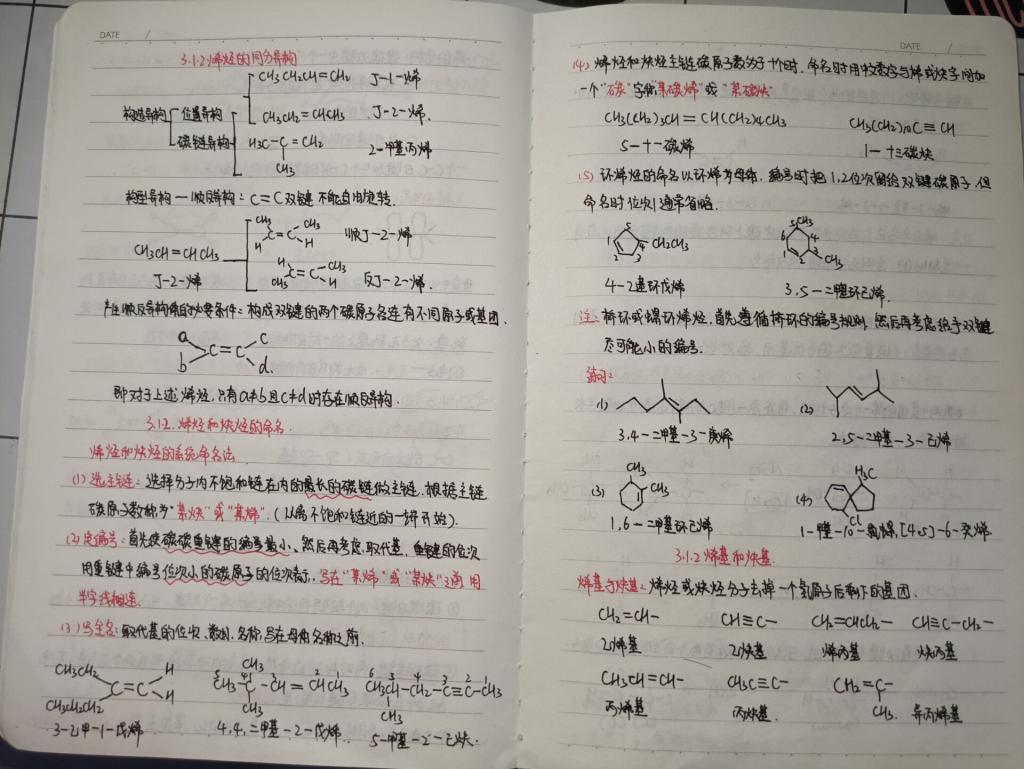 DATE /
3.1.2 烯烃的同分异构
CH3CH2CH=CH2 丁-1-烯
构造异构 位置异构
CH3CH2=CHCH3 丁-2-烯.
碳链异构 H3C-C=CH2 2-甲基丙烯
CH3
构型异构—顺反异构: C=C双键不能自由旋转.
CH3 CH3
C=C 顺丁-2-烯
H H
CH3CH=CHCH3
H CH3
C=C
CH3 H
丁-2-烯. 反丁-2-烯.
产生顺反异构体的必要条件: 构成双键的两个碳原子各连有不同原子或基团.
a c
C=C
b d.
即对于上述烯烃,只有a≠b且c≠d时存在顺反异构.
3.1.2. 烯烃和炔烃的命名.
烯烃和炔烃的系统命名法
(1) 选主链: 选择分子内不饱和链在内的最长的碳链做主链. 根据主链
碳原子数称为"某炔"或"某烯". (从离不饱和链近的一端开始).
(2) 定编号: 首先使碳碳重键的编号最小、然后再考虑取代基, 重键的位次
用重键中编号位次小的碳原子的位次表示, 写在"某烯"或"某炔"之前用
半字线相连.
(3) 写全名: 取代基的位次、数목、名称,写在母体名称之前.
CH3CH2 H CH3 5 4 3 2 1 6 5 4 3 2 1
C=C CH3-C-CH=CHCH3 CH3CH-CH2-C≡C-CH3
CH3CH2CH2 H CH3 CH3
3-乙甲-1-戊烯 4,4,二甲基-2-戊烯. 5-甲基-2-己炔.
DATE /
(4) 烯烃和炔烃主链碳原子数多于十个时. 命名时用中文数字与烯或炔字间加
一个"碳"字称"某碳烯"或"某碳炔"
CH3(CH2)3CH=CH(CH2)4CH3 CH3(CH2)10C≡CH
5-十一碳烯 1-十三碳炔
(5) 环烯烃的命名以环烯为母体, 编号时把1,2位次留给双键碳原子, 但
命名时位次1通常省略.
1 5 4 CH2CH3 CH3 5 6 4 1 3 2 CH3
4-2基环戊烯 3,5-二甲基环己烯.
注: 桥环或螺环烯烃, 首先遵循桥环的编号规则, 然后再考虑给予双键
尽可能小的编号.
练习:
(1) (2)
3.4-二甲基-3-庚烯 2,5-二甲基-3-己烯
CH3 H3C
(3) CH3 (4)
Cl
1,6-二甲基环己烯 1-甲基-10-氯螺[4,5]-6-癸烯
3.1.2 烯基和炔基.
烯基与炔基: 烯烃或炔烃分子去掉一个氢原子后剩下的基团.
CH2=CH- CH≡C- CH2=CHCH2- CH≡C-CH2-
乙烯基 乙炔基 烯丙基 炔丙基
CH3CH=CH- CH3C≡C- CH2=C-
丙烯基 丙炔基. CH3. 异丙烯基